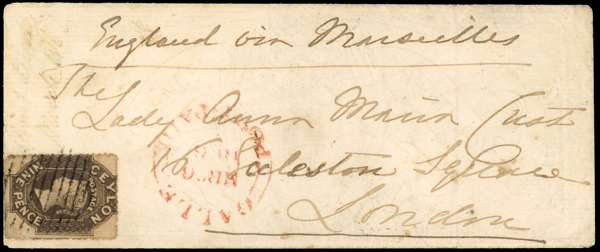 England via Marseilles
The
Lady Anna Maria Cust
16 Eccleston Square
London
GALLE
PAID
CEYLON
POSTAGE
NINE PENCE